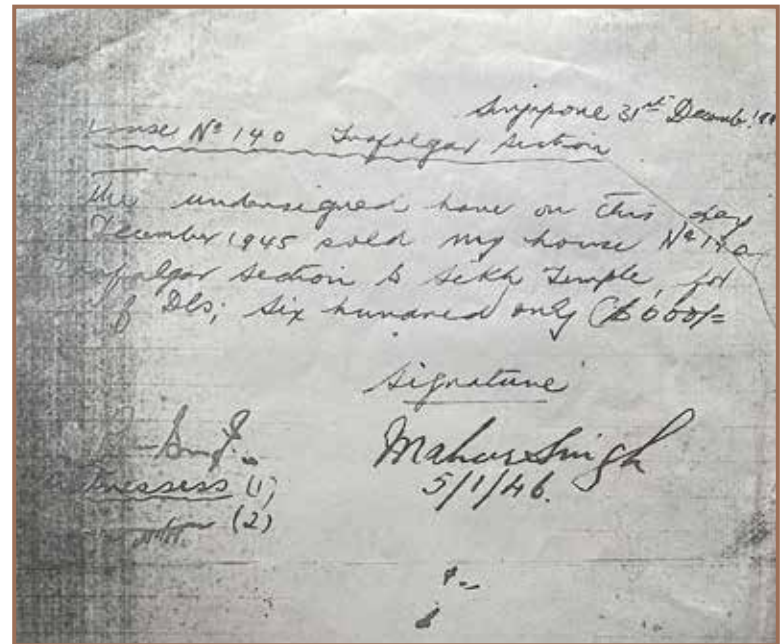 Singapore 31st Decemb.
House No 140 Trafalgar Section
the undersigned have on this day
December 1945 sold my house No 140
Trafalgar Section to Sikh Temple, for
of Dls; Six hundred only ($600/=
Signature
Singh
5/1/46.
Witnessess (1)
(2)